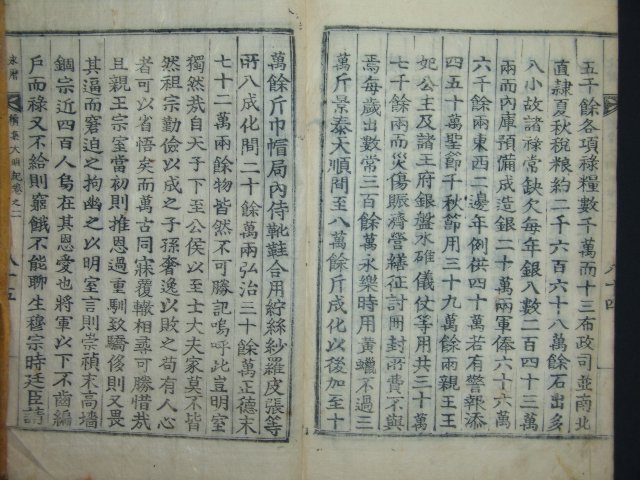 五千餘各項祿糧數千萬而十三布政司並南北
直隷夏秋稅粮約二千六百六十八萬餘石出多
入小故諸祿常缺欠每年銀入數二百四十三萬
兩而內庫預備成造銀二十萬兩軍俸六十六萬
六千餘兩東西二邊年例供四十萬若有警報添
四五十萬聖節千秋節用三十九萬餘兩親王王
妃公主及諸王府銀盤水確儀仗等用共三十萬
七千餘兩而災傷賑濟營繕征討開封所費不與
焉每歲出數常三百餘萬永樂時用黃蠟不過三
萬斤景泰天順間至八萬餘斤成化以後加至十
萬餘斤巾帽局內侍靴鞋合用綜絲紗羅皮張等
所八成化間二十餘萬兩弘治三十餘萬正德末
七十二萬兩餘物皆然不可勝記嗚呼此豈明室
獨然哉自天子下至公侯以至士大夫家莫不皆
然祖宗勤儉以成之子孫奢逸以敗之苟有人心
者可以省悟矣而萬古同寐覆轍相尋可勝惜哉
且親王宗室當初則推恩過重馴致驕侈則又畏
其逼而窘迫之拘幽之以明室言則崇禎末高墻
錮宗近四百人烏在其恩愛也將軍以下不齒編
戶而祿又不給則窮餓不能聊生穆宗時廷臣詩
大明紀卷之二
十五
十四